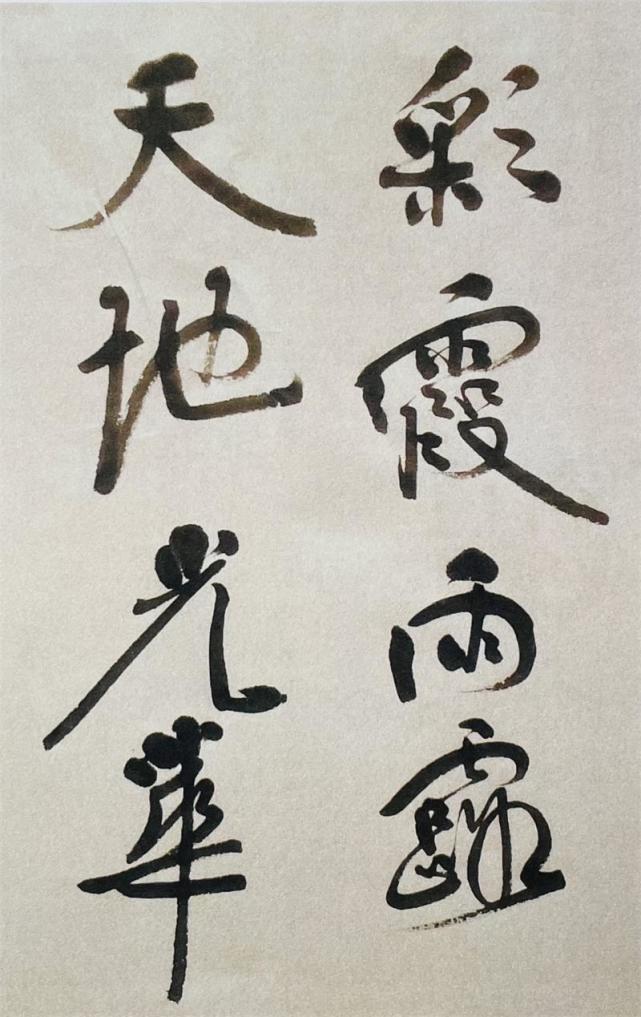 彩霞雨露
天地光華